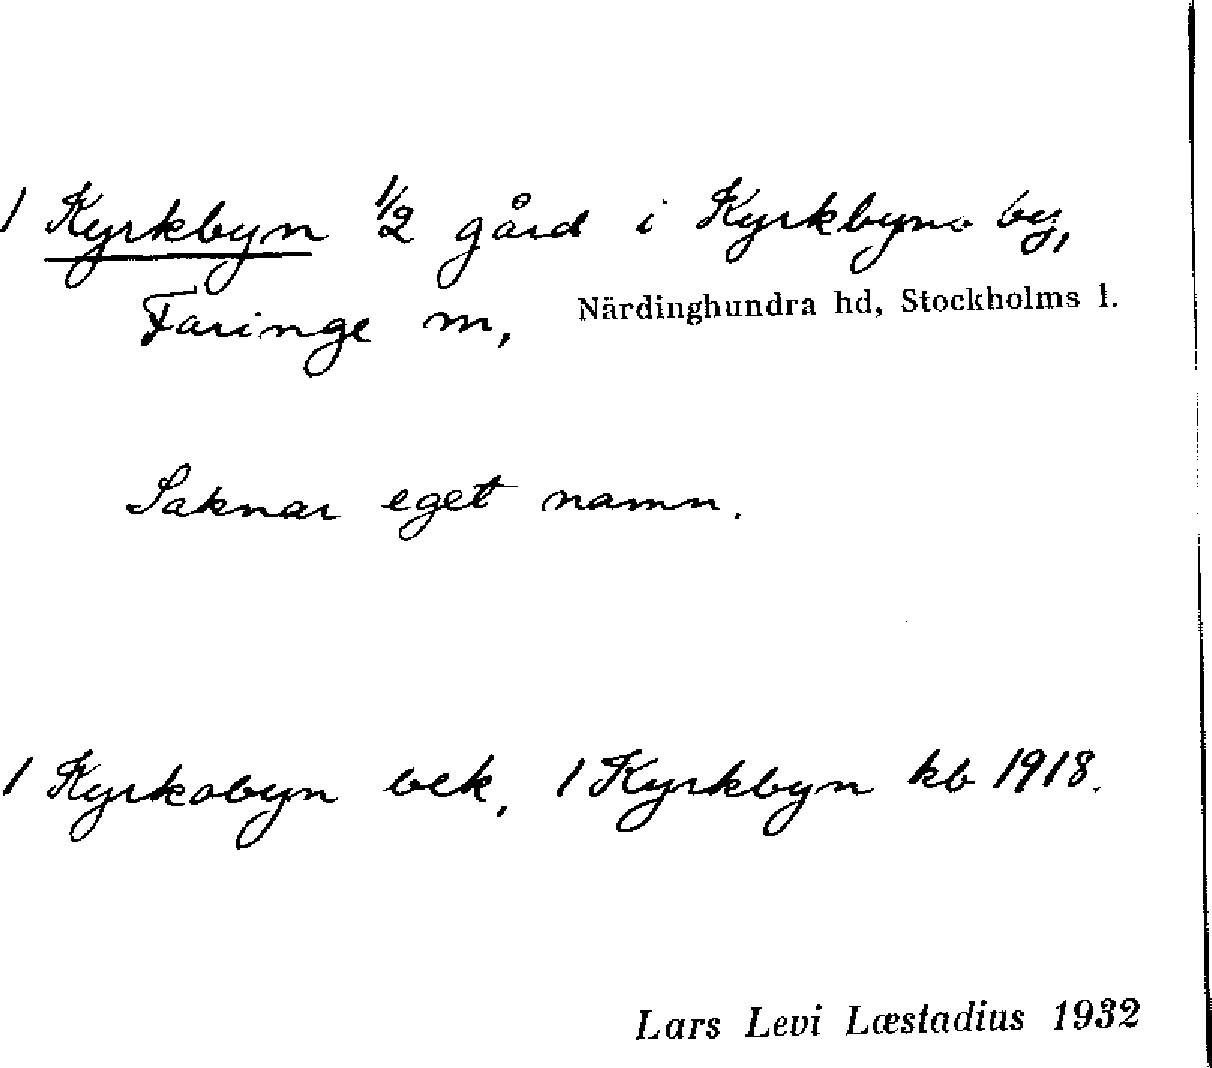 1 Kyrkbyn 1/2 gård i Kyrkbyns by,
Faringe sn, Närdinghundra hd, Stockholms l.
Saknar eget namn.
1 Kyrkobyn bek, 1 Kyrkbyn kb 1918.
Lars Levi Læstadius 1932